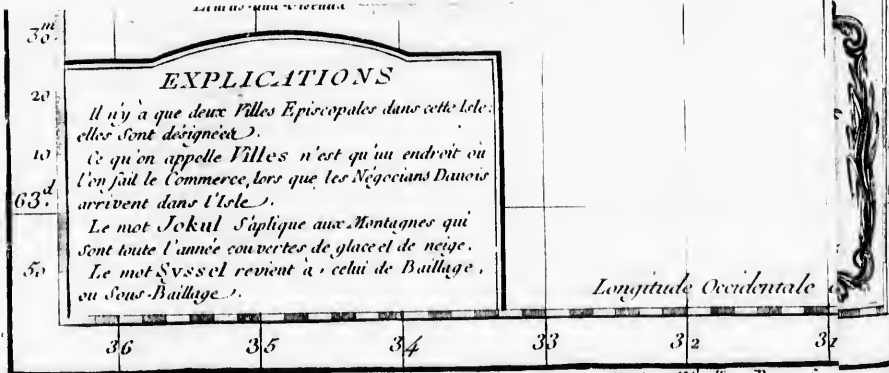 3m
30.
EXPLICATIONS
20
Il n'y à que deux Villes Episcopales dans cette Isle:
elles sont désignées.
10
Ce qu'on appelle Villes n'est qu'un endroit où
l'on fait le Commerce, lors que les Négocians Danois
63.d
arrivent dans l'Isle.
Le mot Jokul s'aplique aux Montagnes qui
sont toute l'année couvertes de glace et de neige.
50
Le mot Syssel revient à celui de Baillage,
ou Sous-Baillage.
Longitude Occidentale
36 35 34 33 32 31